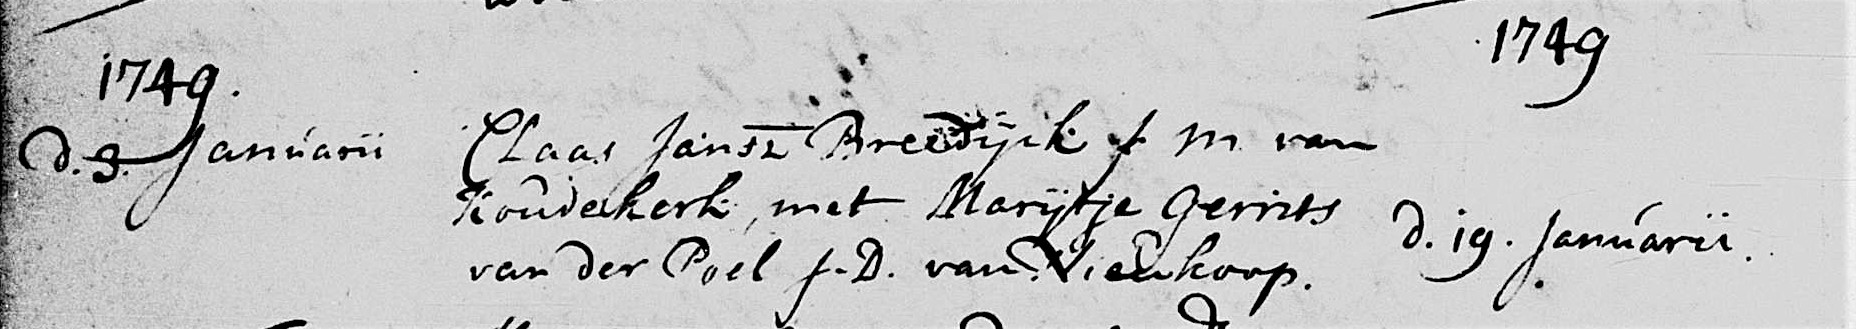 1749. 1749
d. 3. Januarii Claas Jansz Breedijck j m van
Koudekerk, met Marijtje Gerrits
van der Poel j. D. van Nieukoop. d. 19. Januarii.